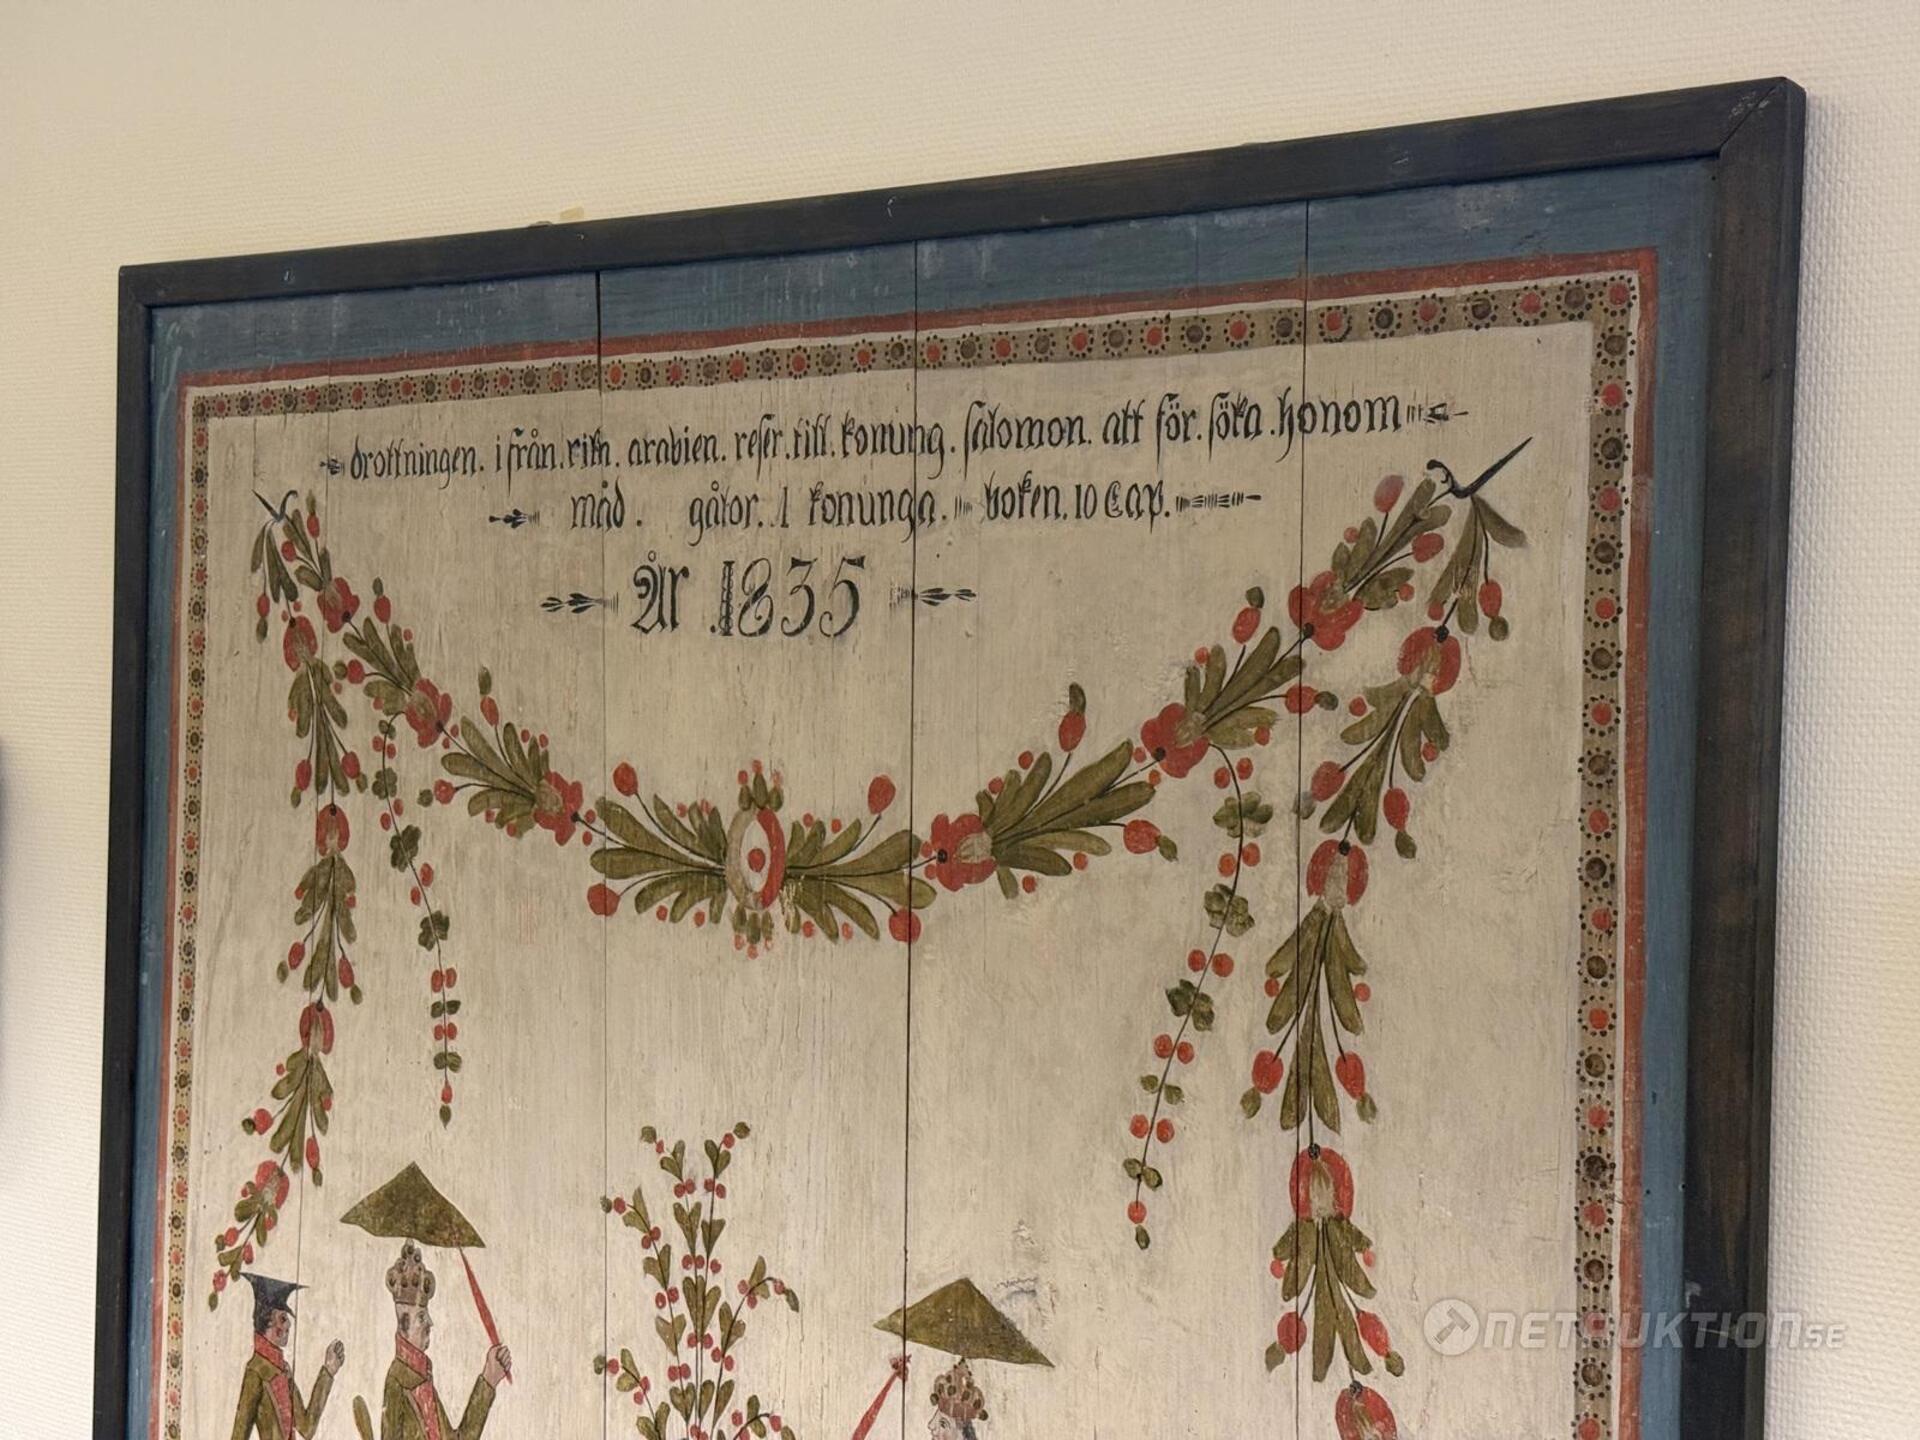 drottningen. ifrån. rikn. arabien. reser. till. konung. salomon. att för. söka. honom
måd. gåtor. 1 konunga. boken. 10 Cap.
År 1835
NETAUKTION.SE